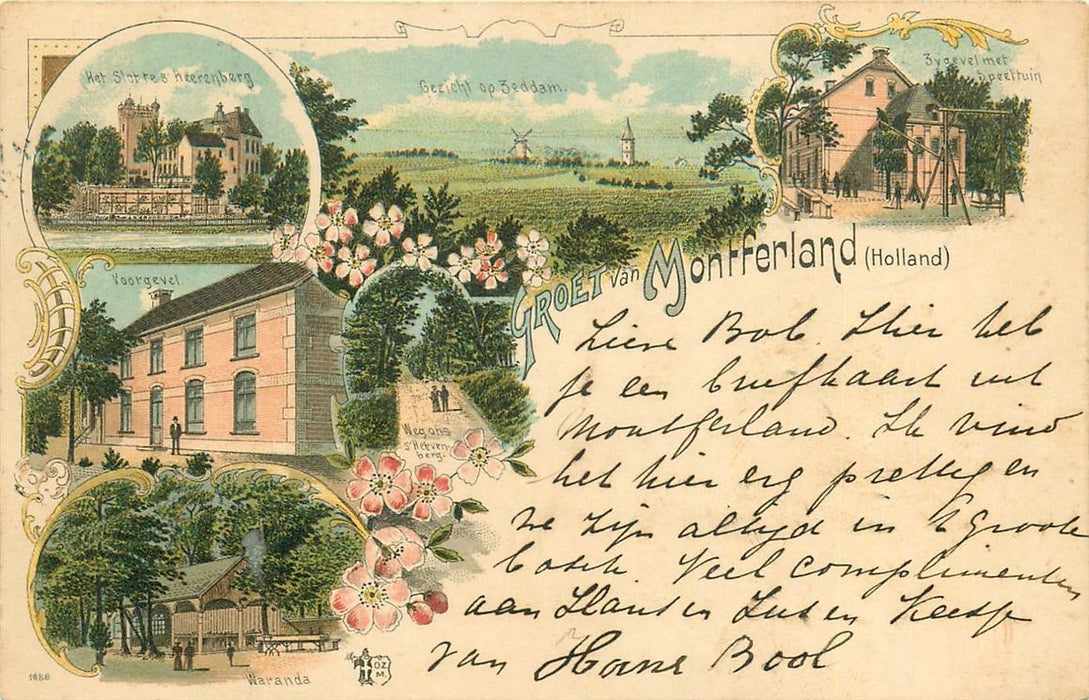 Het Slot te s'heerenberg.
Gezicht op Zeddam.
Zygevel met
Speeltuin
Voorgevel.
GROET van Montferland (Holland)
Weg ons
s'Heeren
berg.
Waranda
1686
O.Z.
M.
Lieve Bob. Hier heb
je een briefkaart uit
Montferland. Ik vind
het hier erg prettig en
we zijn altijd in 't groote
bosch. Veel complimenten
aan Hans en Zus en Keesje
van Bool